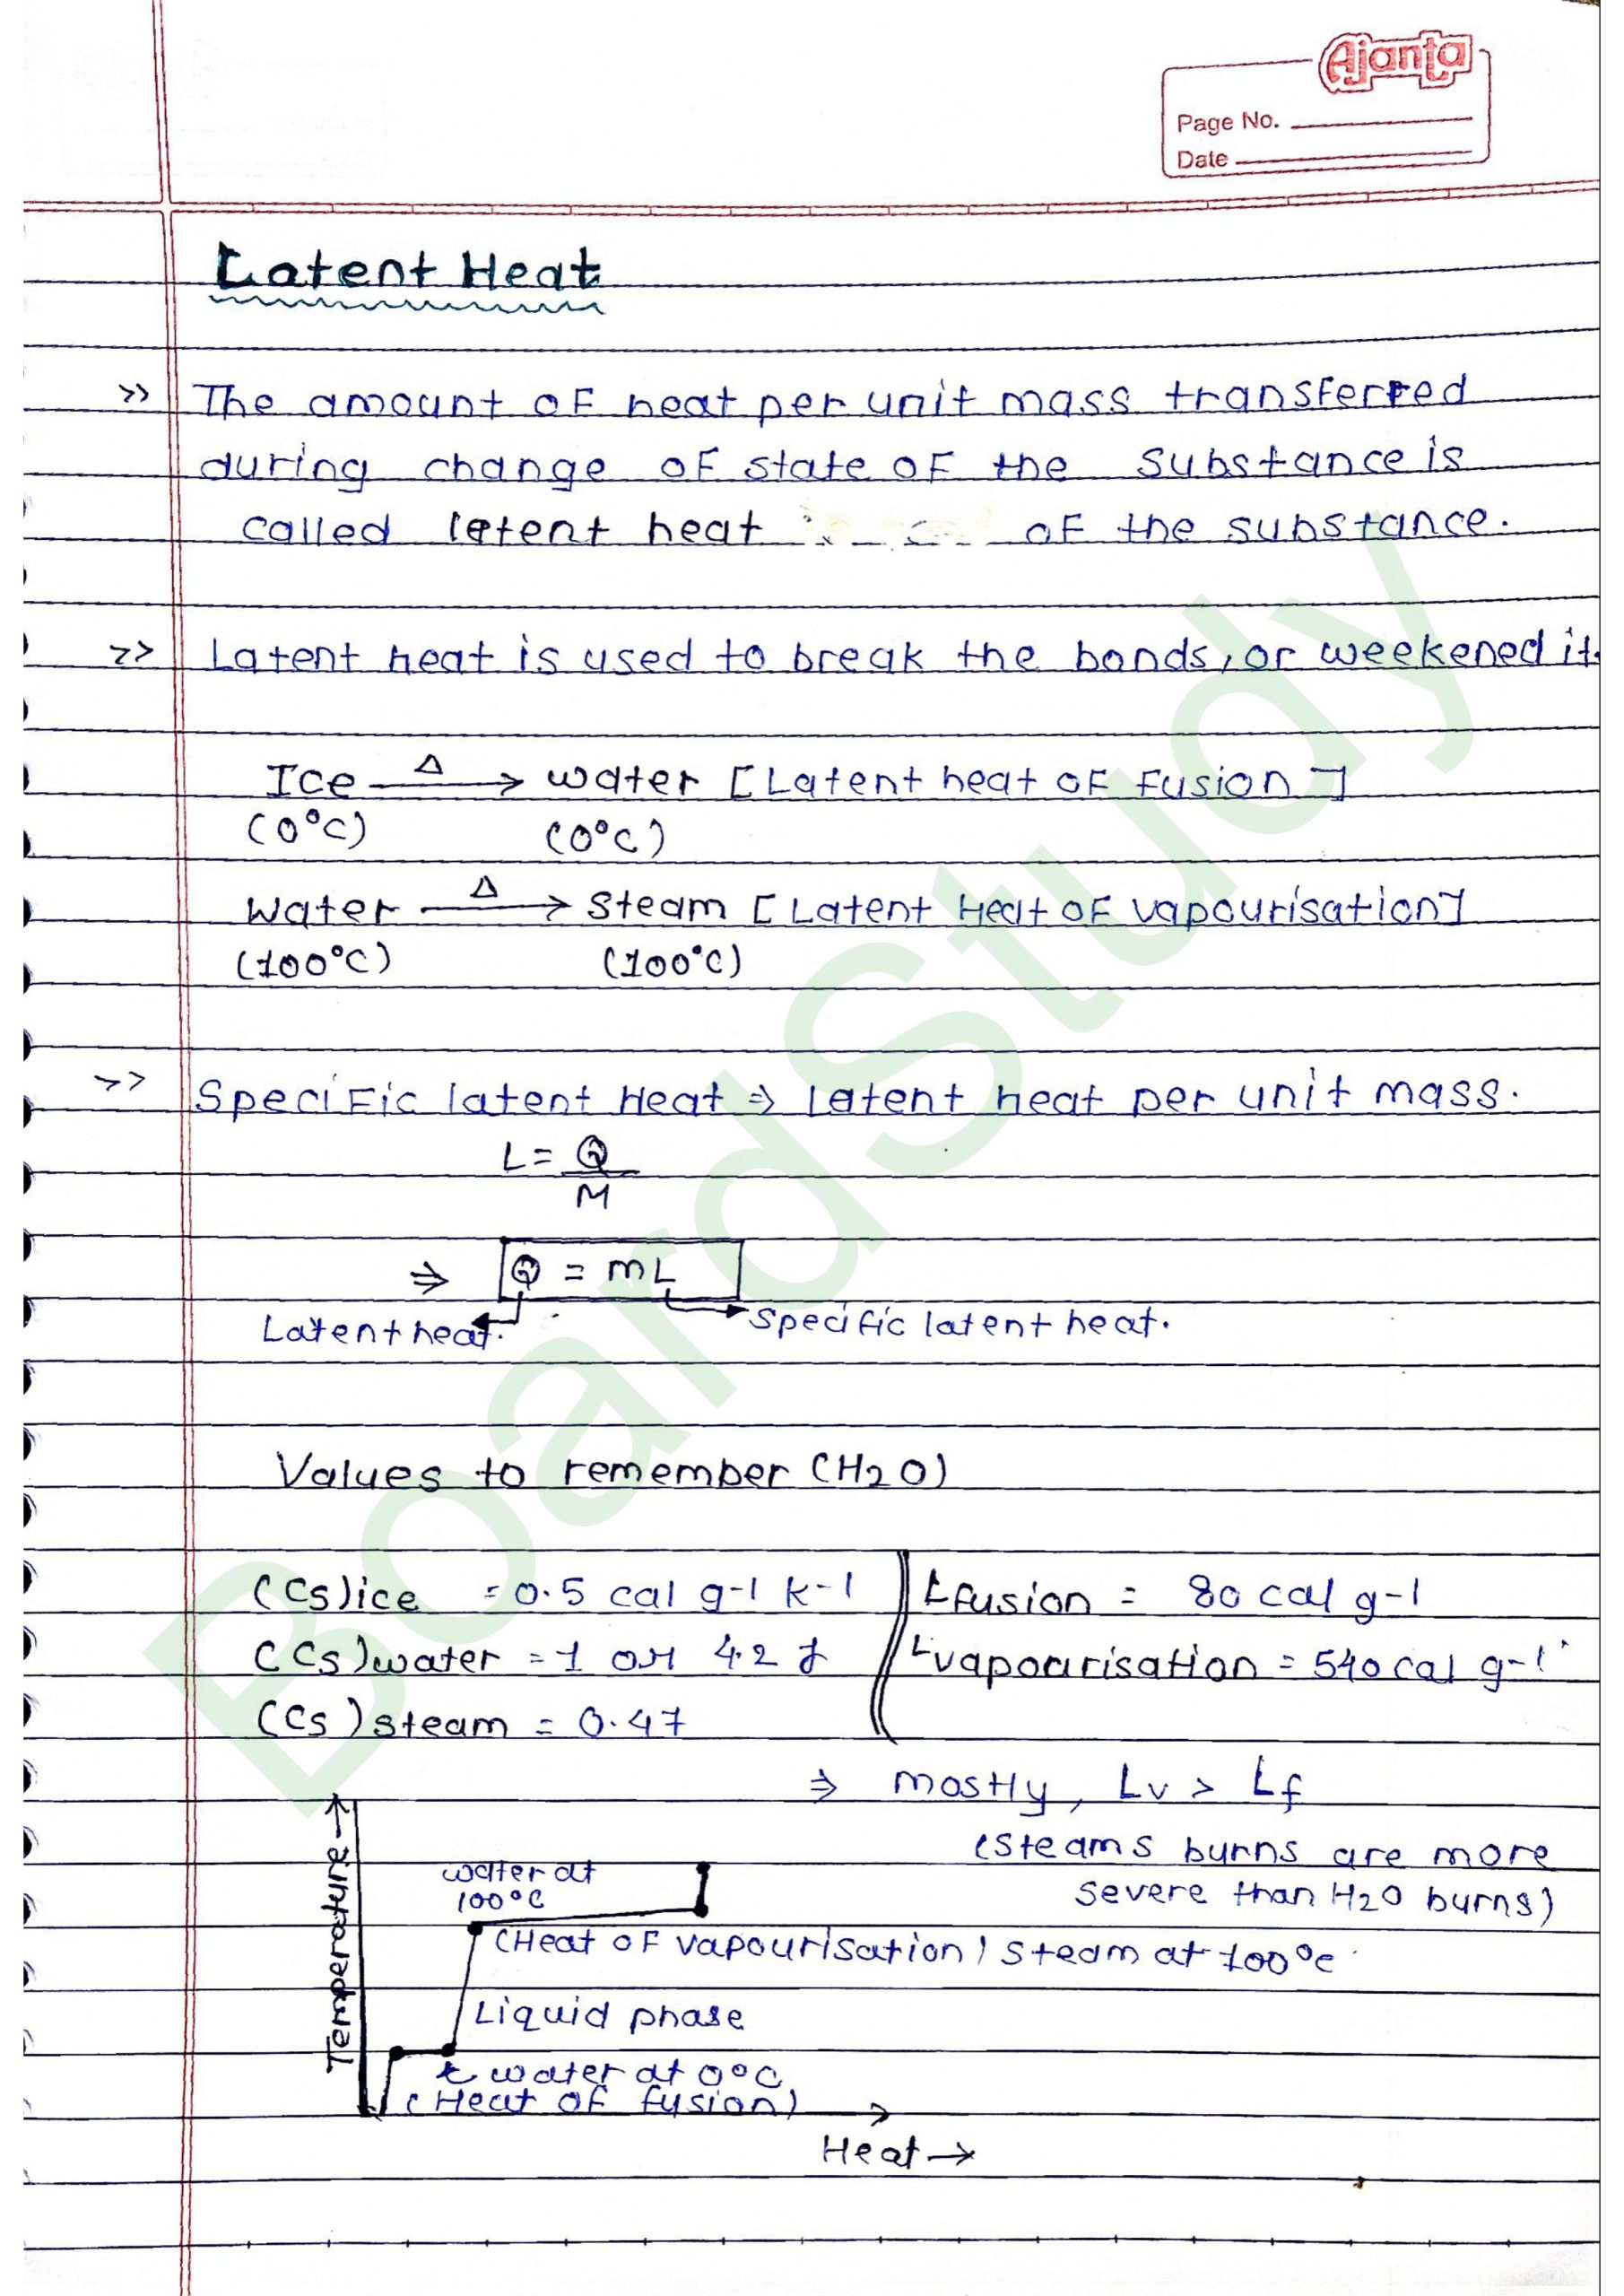 Ajanta
Page No.
Date
Latent Heat
>> The amount of heat per unit mass transferred
during change of state of the substance is
called letent heat of the substance.
>> Latent heat is used to break the bonds, or weekened it.
Ice —Δ→ water [Latent heat of fusion]
(0°C) (0°C)
Water —Δ→ Steam [Latent Heat of vapourisation]
(100°C) (100°C)
>> Specific latent Heat ⇒ latent heat per unit mass.
L = Q
M
⇒ Q = mL
Latent heat. Specific latent heat.
Values to remember (H2O)
(Cs)ice = 0.5 cal g-1 k-1 Lfusion = 80 cal g-1
(Cs)water = 1 or 4.2 J Lvapourisation = 540 cal g-1
(Cs)steam = 0.47
⇒ mostly, Lv > Lf
(steams burns are more
severe than H2O burns)
Temperature →
water at
100°C
(Heat of vapourisation) steam at 100°c
Liquid phase
water at 0°C
(Heat of fusion)
Heat →
BoardStudy